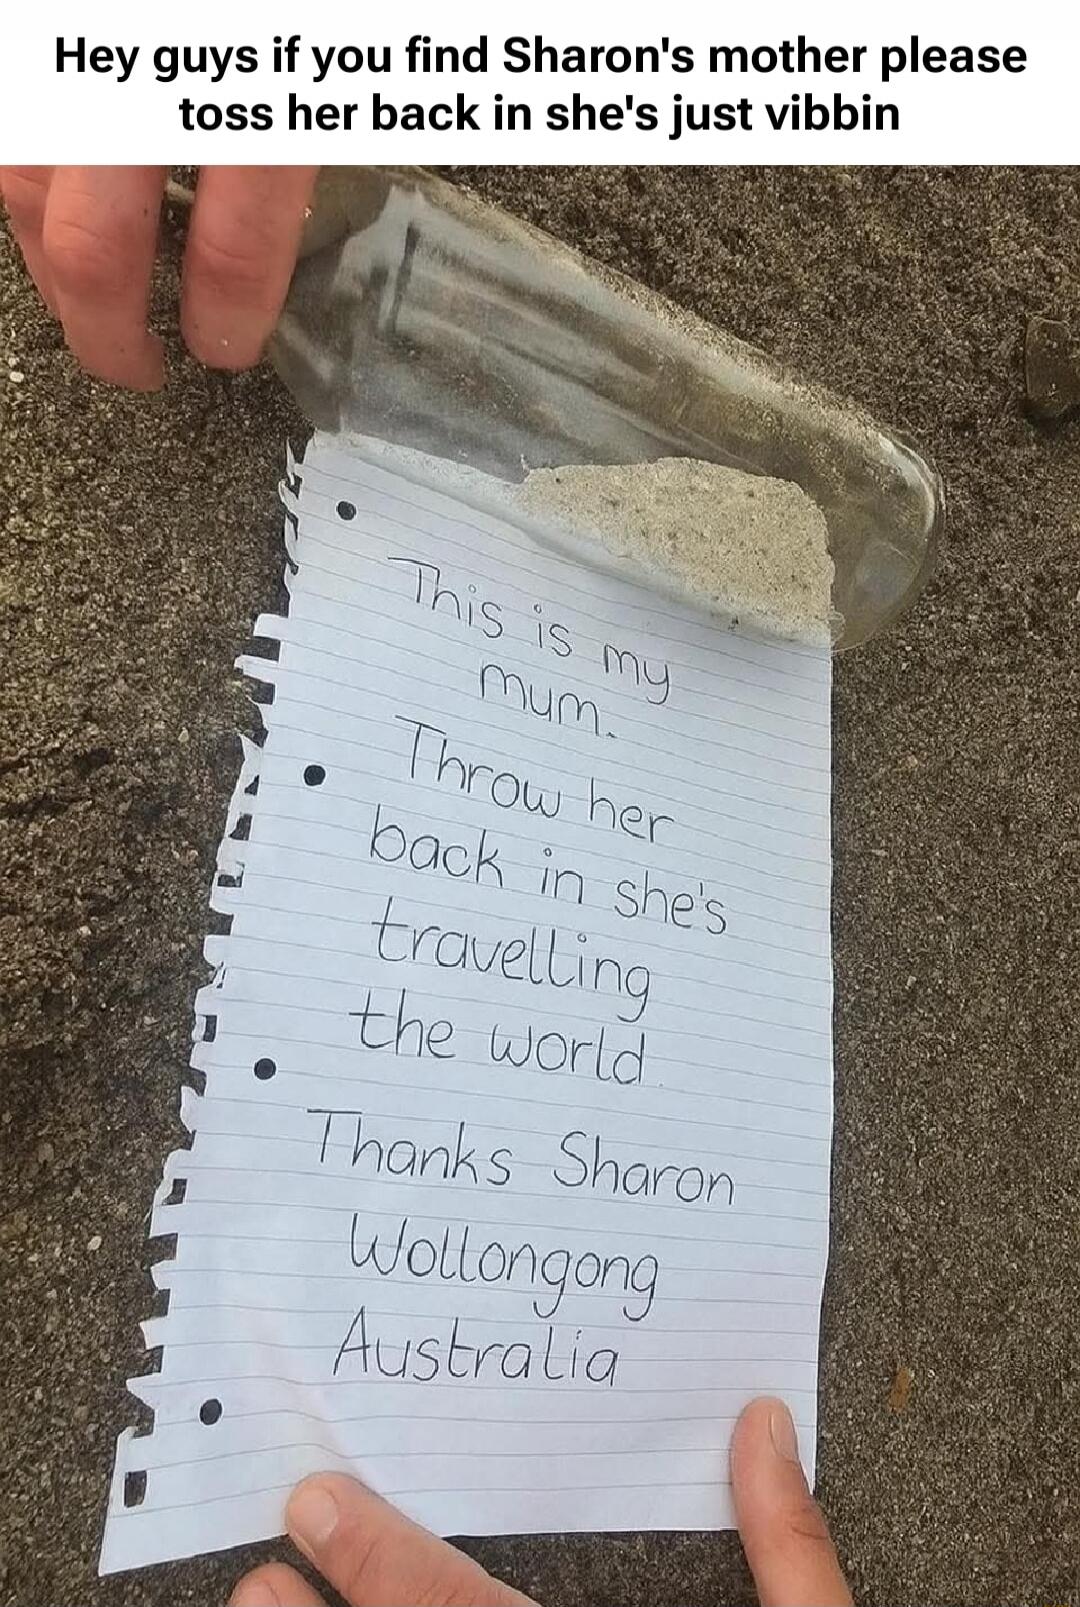 Hey guys if you find Sharon's mother please
toss her back in she's just vibbin
This is my
mum.
Throw her
back in she's
travelling
the world.
Thanks Sharon
Wollongong
Australia